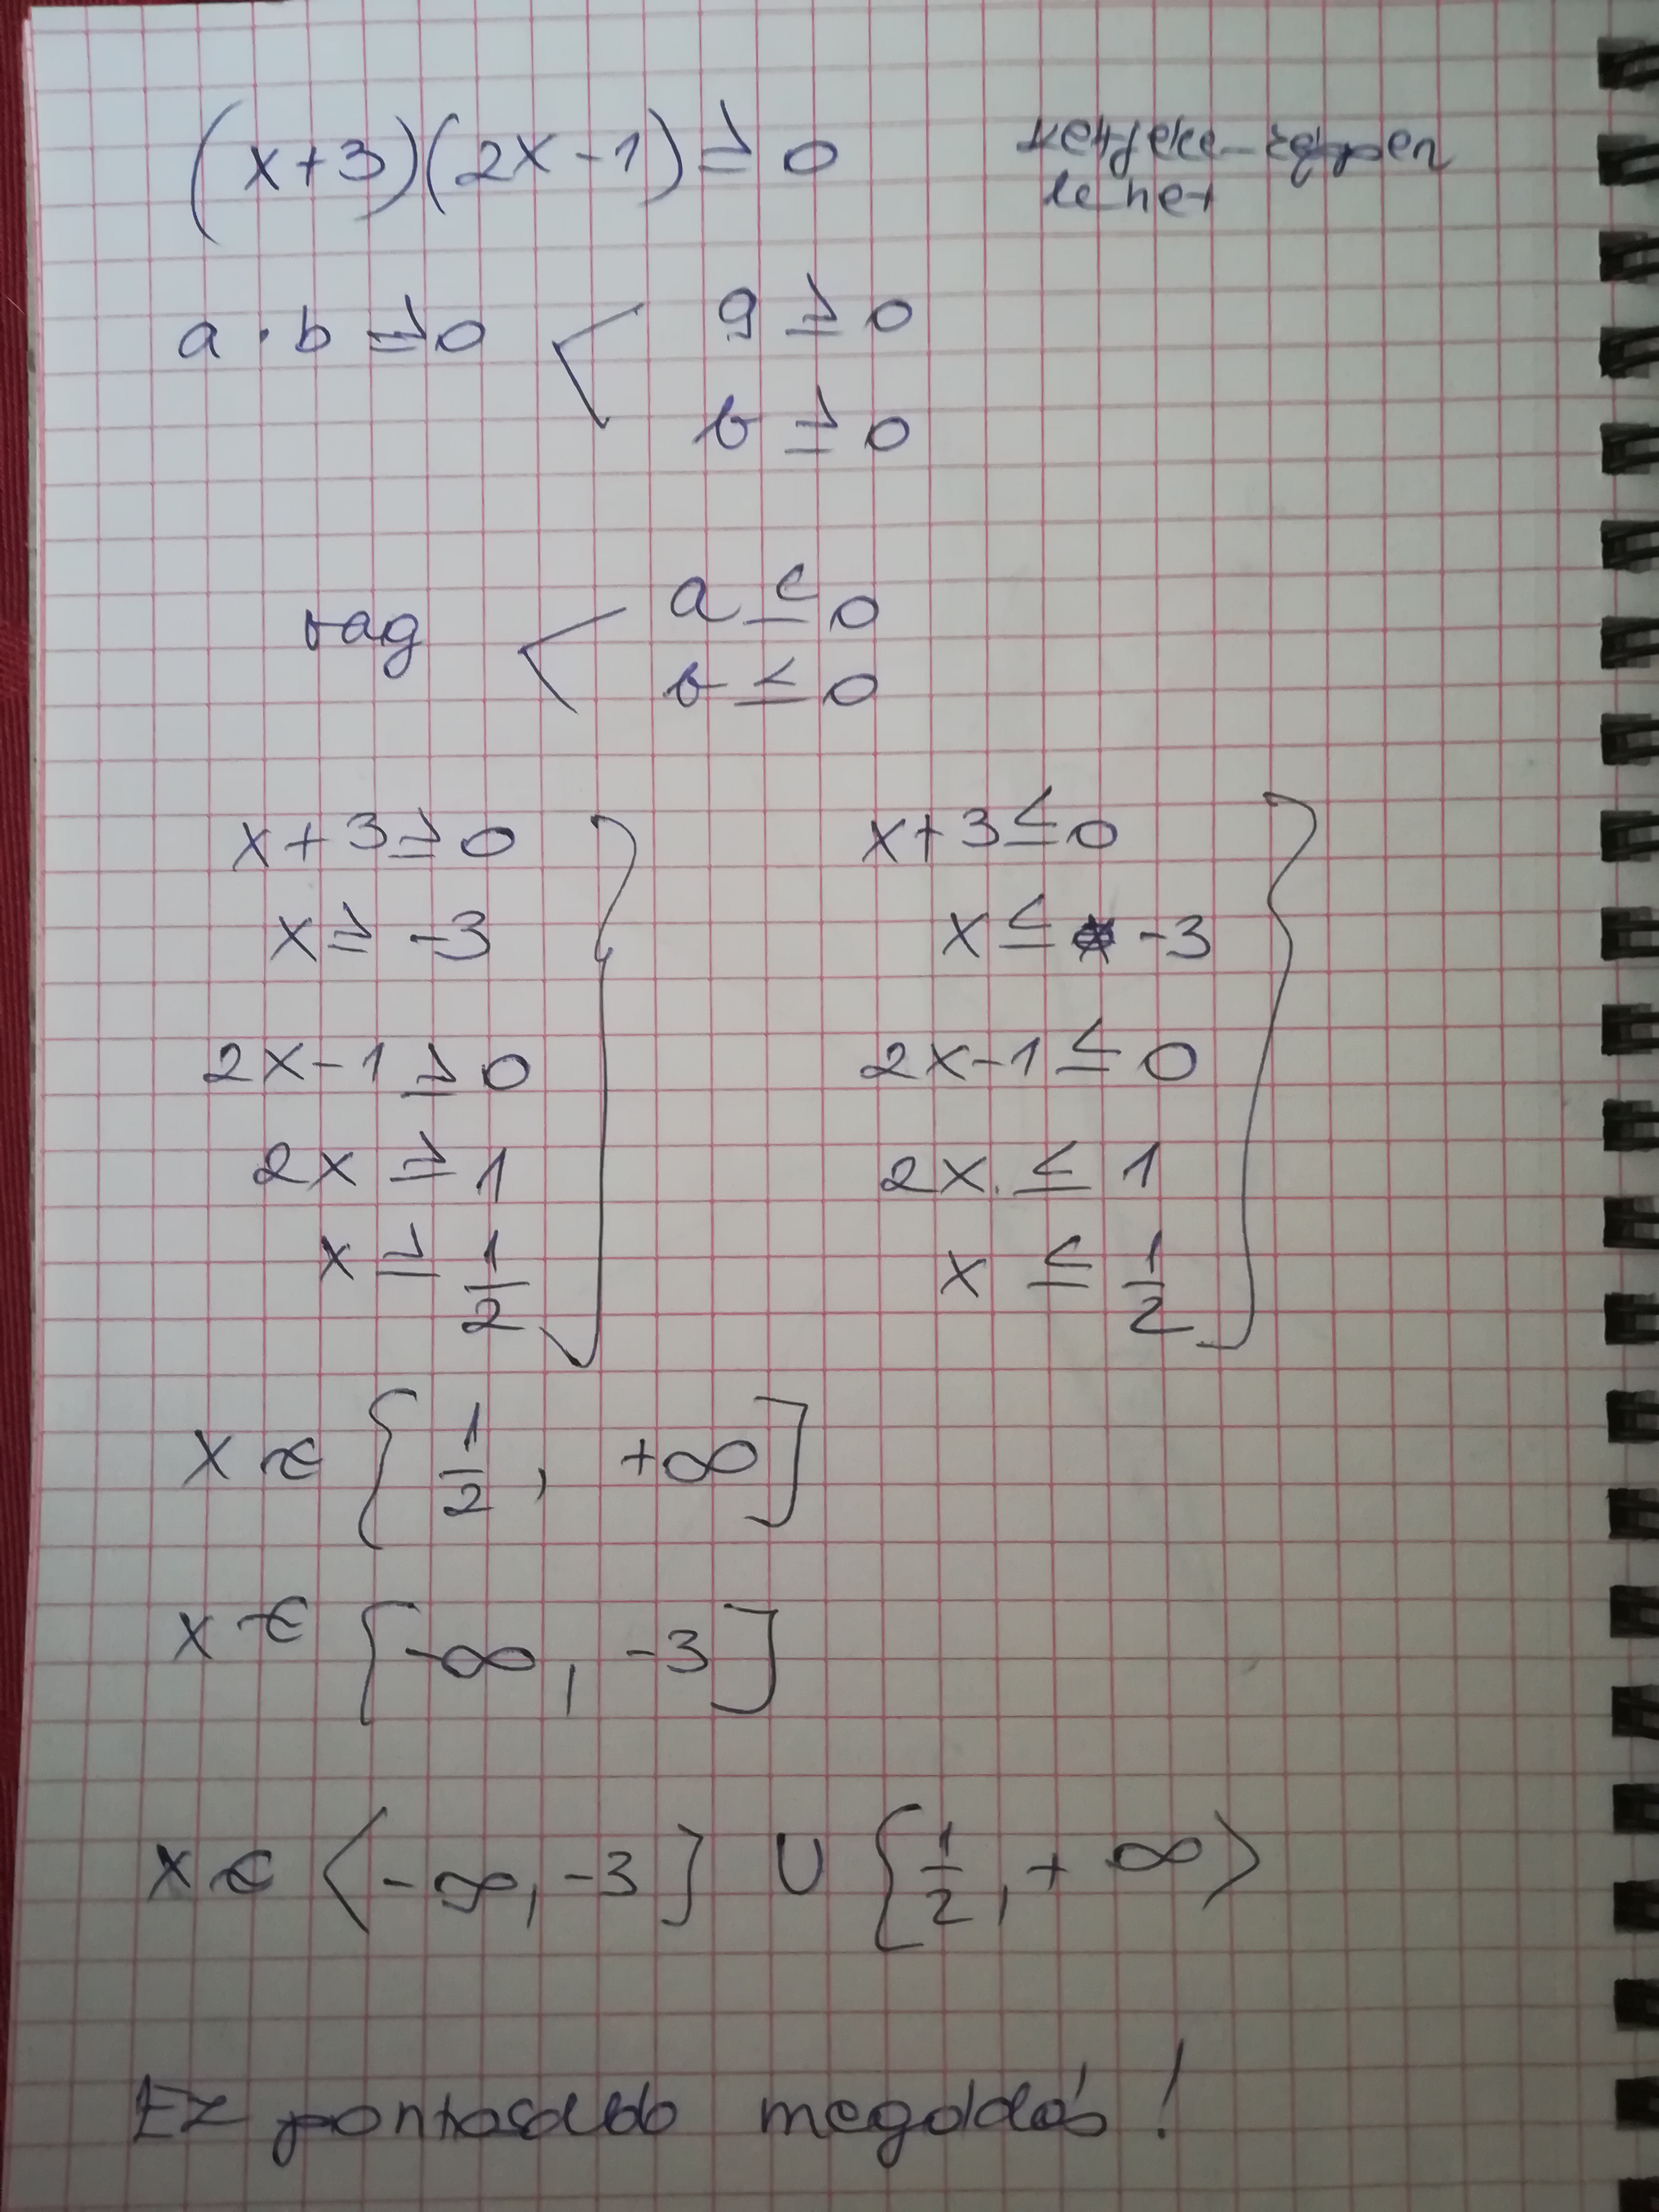 (x+3)(2x-1) ≥ 0
kétféle-képpen
lehet
a · b ≥ 0
a ≥ 0
b ≥ 0
vag
a ≤ 0
b ≤ 0
x+3 ≥ 0
x ≥ -3
2x-1 ≥ 0
2x ≥ 1
x ≥ 1/2
x+3 ≤ 0
x ≤ -3
2x-1 ≤ 0
2x. ≤ 1
x ≤ 1/2
x ∈ [1/2, +∞]
x ∈ [-∞, -3]
x ∈ <-∞, -3] ∪ [1/2, +∞>
Ez pontosabb megoldás!